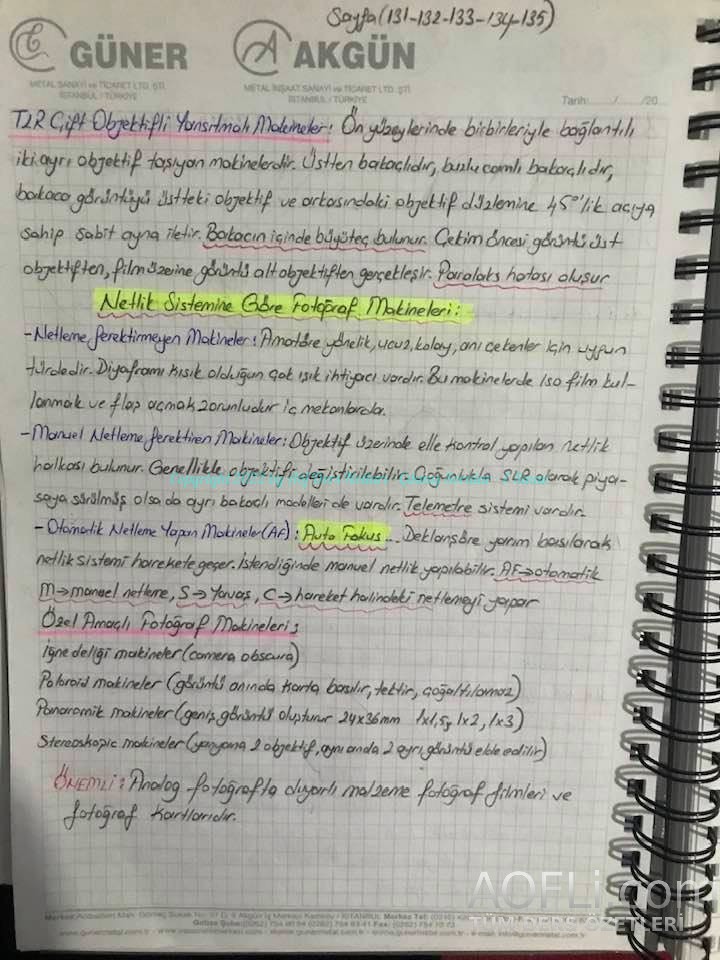 Sayfa (131-132-133-134-135)
GÜNER
AKGÜN
METAL SANAYİ ve TİCARET LTD. ŞTİ.
İSTANBUL / TÜRKİYE
METAL İNŞAAT SANAYİ ve TİCARET LTD. ŞTİ.
İSTANBUL / TÜRKİYE
Tarih: ....../....../20
TLR Çift Objektifli Yansıtmalı Makineler: Ön yüzeylerinde birbirleriyle bağlantılı
iki ayrı objektif taşıyan makinelerdir. Üstten bakaçlıdır, buzlu camlı bakaçlıdır,
bakaca görüntüyü üstteki objektif ve arkasındaki objektif düzlemine 45°'lik açıya
sahip sabit ayna iletir. Bakacın içinde büyüteç bulunur. Çekim öncesi görüntü üst
objektiften, film üzerine görüntü alt objektiften gerçekleşir. Paralaks hatası oluşur
Netlik Sistemine Göre Fotoğraf Makineleri:
-Netleme Gerektirmeyen Makineler: Amatöre yönelik, ucuz, kolay, anı çekenler için uygun
türdedir. Diyaframı kısık olduğun çok ışık ihtiyacı vardır. Bu makinelerde iso film kul-
lanmak ve flaş açmak zorunludur iç mekanlarda.
-Manuel Netleme Gerektiren Makineler: Objektif üzerinde elle kontrol yapılan netlik
halkası bulunur. Genellikle objektifi değiştirilebilir. Çoğunlukla SLR olarak piya-
saya sürülmüş olsa da ayrı bakaçlı modelleri de vardır. Telemetre sistemi vardır.
-Otomatik Netleme Yapan Makineler (AF): Auto Fokus... Deklanşöre yarım basılarak
netlik sistemi harekete geçer. İstendiğinde manuel netlik yapılabilir. AF→otomatik
M→manuel netleme, S→Yavaş, C→hareket halindeki netlemeyi yapar
Özel Amaçlı Fotoğraf Makineleri:
İğne deliği makineler (camera obscura)
Polaroid makineler (görüntü anında karta basılır, tektir, çoğaltılamaz)
Panaromik makineler (geniş görüntü oluşturur 24x36mm 1x1,5, 1x2, 1x3)
Stereoskopic makineler (yanyana 2 objektif, aynı anda 2 ayrı görüntü elde edilir)
ÖNEMLİ: Analog fotoğrafta duyarlı malzeme fotoğraf filmleri ve
fotoğraf kartlarıdır.
AOFLi.com
TÜM DERS ÖZETLERİ